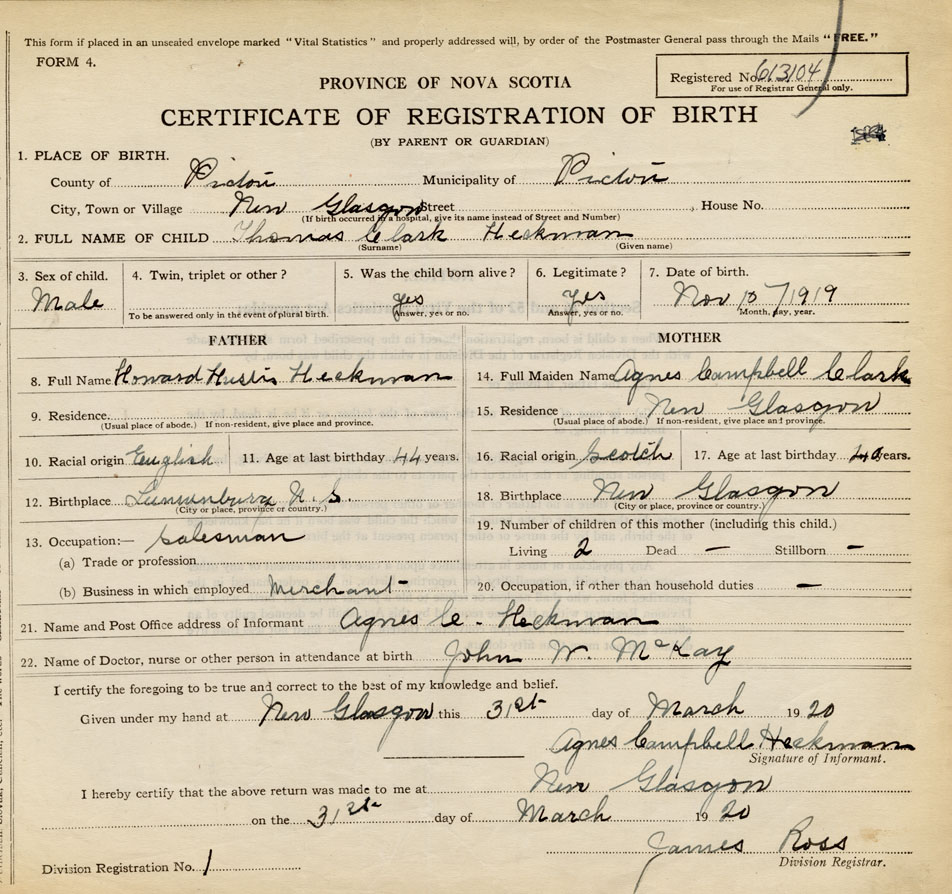 This form if placed in an unsealed envelope marked "Vital Statistics" and properly addressed will, by order of the Postmaster General pass through the Mails "FREE."
FORM 4.
Registered No. 613104
For use of Registrar General only.
PROVINCE OF NOVA SCOTIA
CERTIFICATE OF REGISTRATION OF BIRTH
(BY PARENT OR GUARDIAN)
1. PLACE OF BIRTH.
County of Pictou Municipality of Pictou
City, Town or Village New Glasgow Street , House No.
(If birth occurred in a hospital, give its name instead of Street and Number)
2. FULL NAME OF CHILD Thomas Clark Heckman
(Surname) (Given name)
3. Sex of child. 4. Twin, triplet or other? 5. Was the child born alive? 6. Legitimate? 7. Date of birth.
Male Yes Yes Nov 10 1919
To be answered only in the event of plural birth. Answer, yes or no. Answer, yes or no. Month, day, year.
FATHER MOTHER
8. Full Name Howard Hustis Heckman 14. Full Maiden Name Agnes Campbell Clark
9. Residence 15. Residence New Glasgow
(Usual place of abode.) If non-resident, give place and province. (Usual place of abode.) If non-resident, give place and province.
10. Racial origin English 11. Age at last birthday 44 years. 16. Racial origin Scotch 17. Age at last birthday 40 years.
12. Birthplace Lunenburg N.S. 18. Birthplace New Glasgow
(City or place, province or country.) (City or place, province or country.)
13. Occupation:— Salesman 19. Number of children of this mother (including this child.)
(a) Trade or profession Living 2 Dead — Stillborn —
(b) Business in which employed Merchant 20. Occupation, if other than household duties —
21. Name and Post Office address of Informant Agnes C. Heckman
22. Name of Doctor, nurse or other person in attendance at birth John W. McKay
I certify the foregoing to be true and correct to the best of my knowledge and belief.
Given under my hand at New Glasgow this 31st day of March 1920
Agnes Campbell Heckman
Signature of Informant.
I hereby certify that the above return was made to me at New Glasgow
on the 31st day of March 1920
James Ross
Division Registrar.
Division Registration No. 1